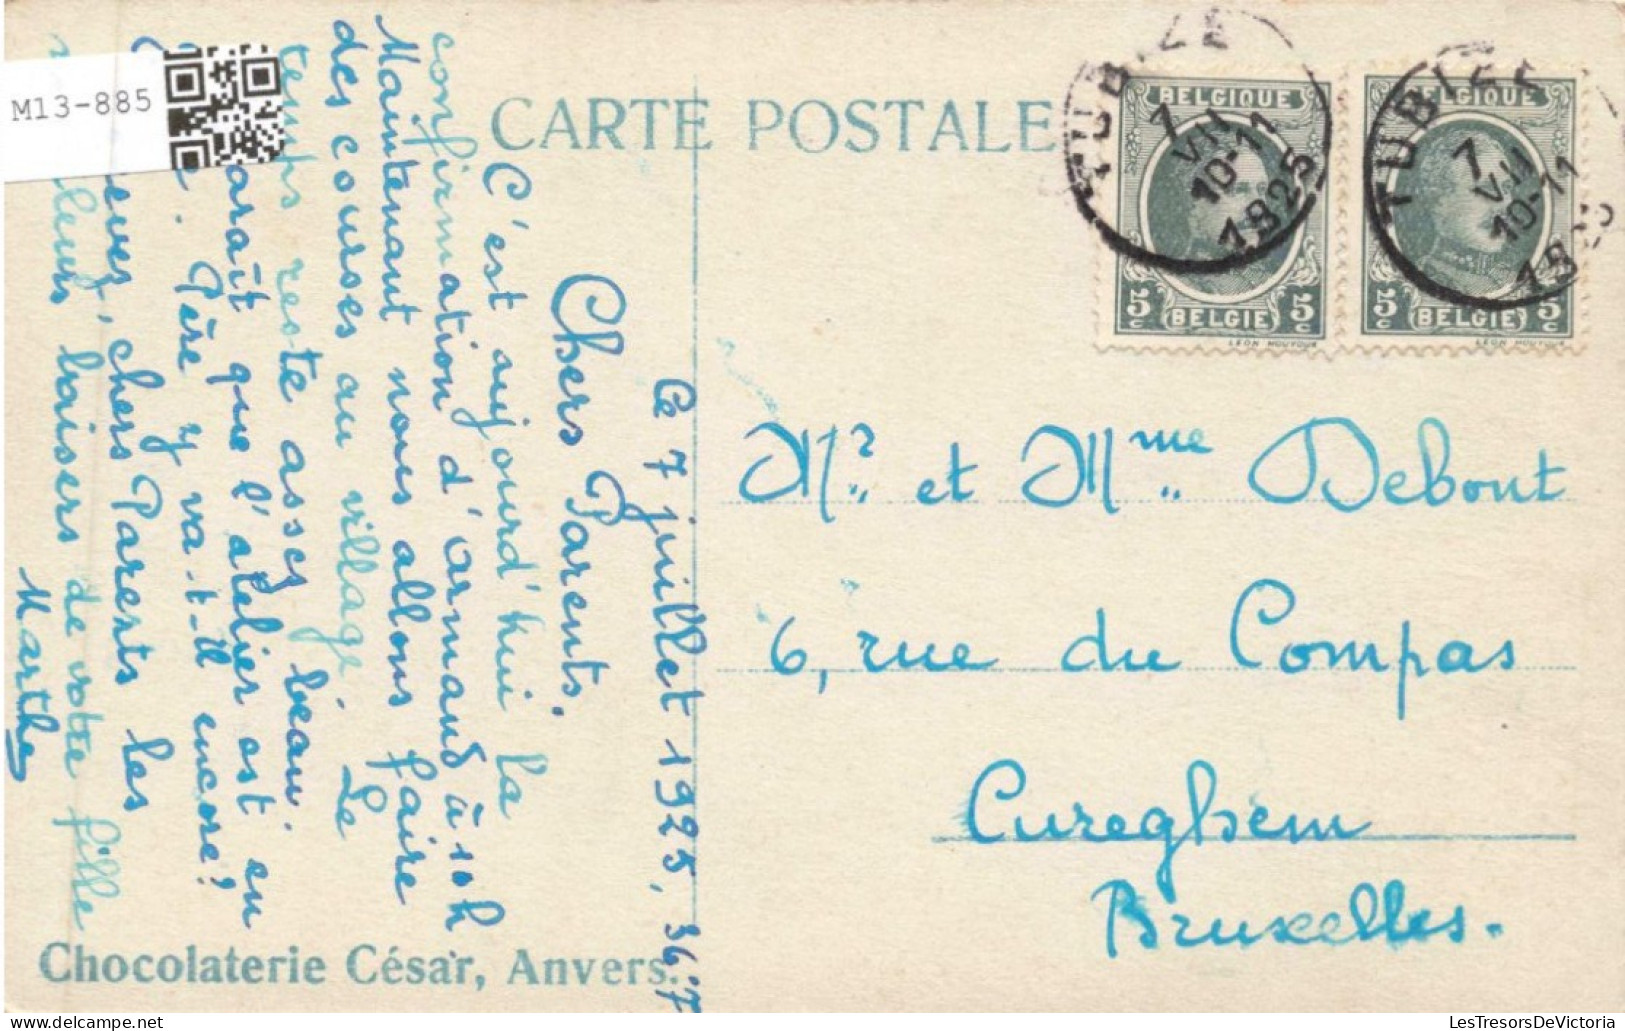 M13-885
CARTE POSTALE
Ce 7 juillet 1925, 36.7
Chers Parents,
C'est aujourd'hui la
confirmation d'Armand à 10h.
Maintenant nous allons faire
des courses au village. Le
temps reste assez beau.
paraît que l'atelier est en
Père y va-t-il encore?
chers Parents les
baisers de votre fille
Marthe
Chocolaterie César, Anvers.
TUBIZE
7
VII
10-11
1925
BELGIQUE
5c 5c
BELGIE
LEON HOUYOUX
TUBIZE
7
VII
10-11
BELGIQUE
5c 5c
BELGIE
LEON HOUYOUX
Mr. et Mme. Debont
6, rue du Compas
Cureghem
Bruxelles.
LesTresorsDeVictoria